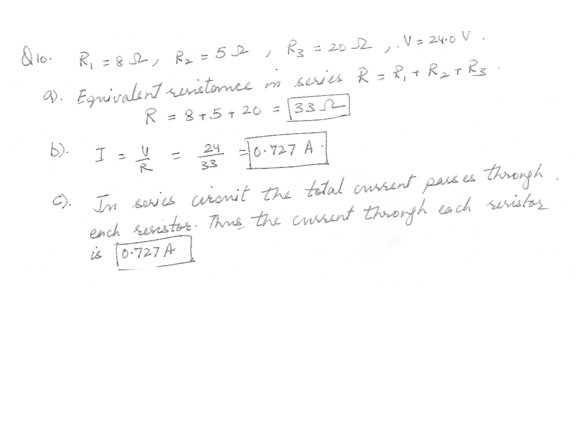 Q10. R₁ = 8 Ω, R₂ = 5 Ω, R₃ = 20 Ω, V = 24.0 V.
a). Equivalent resistance in series R = R₁ + R₂ + R₃.
R = 8 + 5 + 20 = 33 Ω
b). I = V/R = 24/33 = 0.727 A.
c). In series circuit the total current passes through
each resistor. Thus, the current through each resistor
is 0.727 A